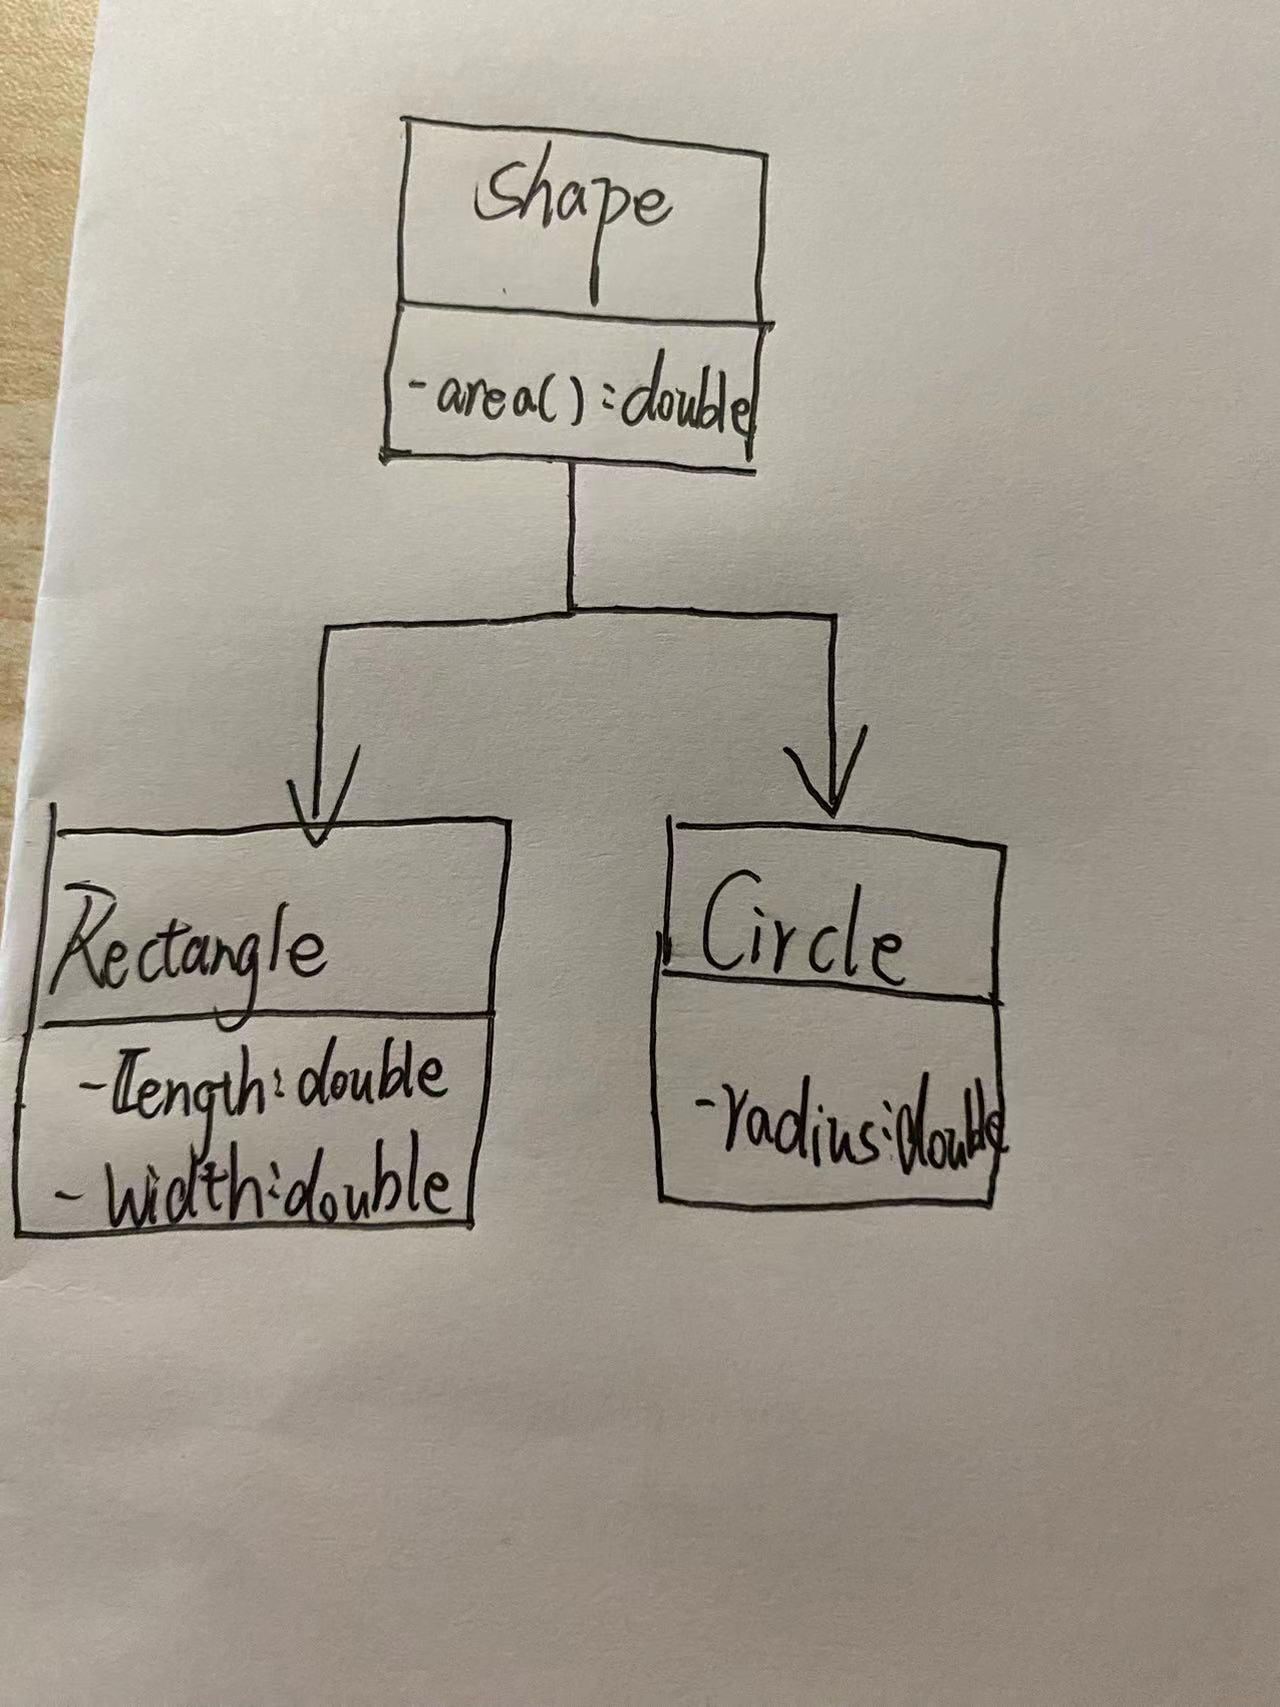 Shape
-area():double
Rectangle
-length:double
-width:double
Circle
-radius:double